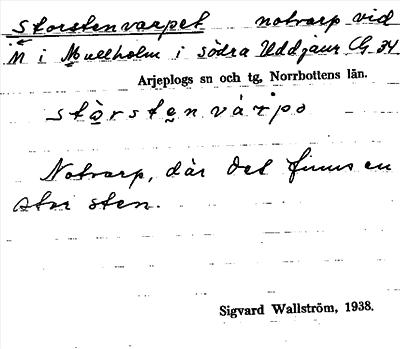 Storstenvarpet notvarp vid
N i Mullholm i södra Uddjaur CG 34
Arjeplogs sn och tg, Norrbottens län.
stòrstenvárpo
Notvarp, där det finns en
stor sten.
Sigvard Wallström, 1938.